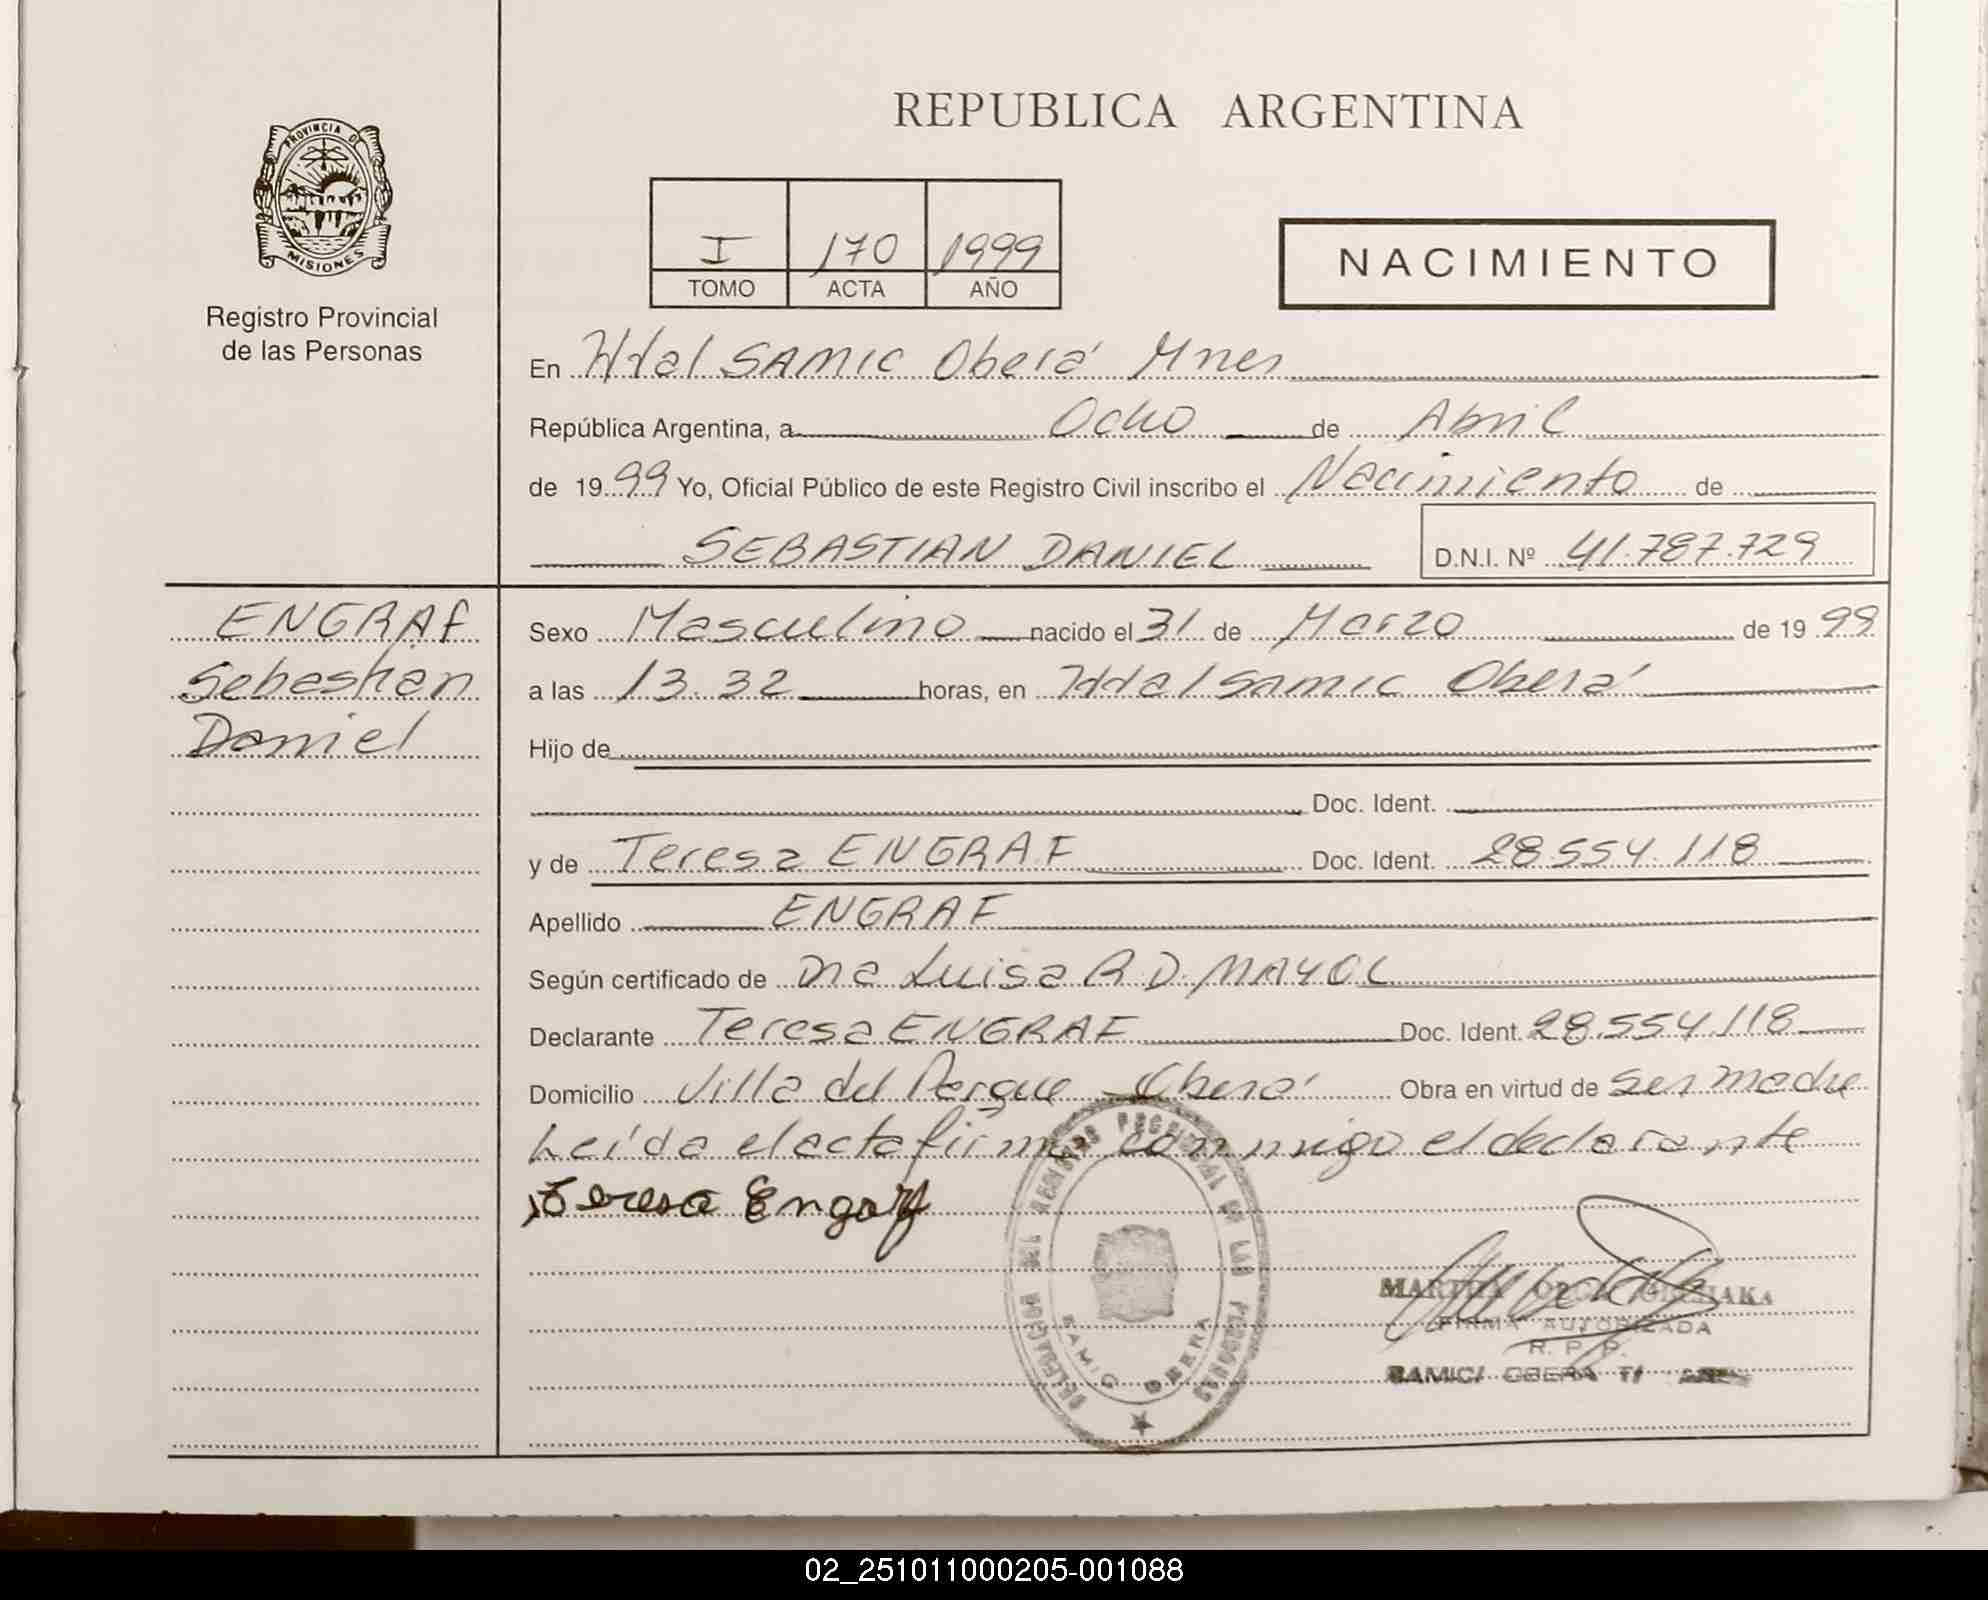 PROVINCIA DE
MISIONES
Registro Provincial
de las Personas
REPUBLICA ARGENTINA
I 170 1999
TOMO ACTA AÑO
NACIMIENTO
En Htal SAMIC Oberá Mnes
República Argentina, a Ocho de Abril
de 1999 Yo, Oficial Público de este Registro Civil inscribo el Nacimiento de
SEBASTIAN DANIEL D.N.I. Nº 41.787.729
ENGRAF
Sebastián
Daniel
Sexo Masculino nacido el 31 de Marzo de 1999
a las 13.32 horas, en Htal Samic Oberá
Hijo de
Doc. Ident.
y de Teresa ENGRAF Doc. Ident. 28.554.118
Apellido ENGRAF
Según certificado de Dra Luisa R D. MAYOL
Declarante Teresa ENGRAF Doc. Ident. 28.554.118
Domicilio Villa del Parque Oberá Obra en virtud de ser madre
Leída el acta firma conmigo el declarante
Teresa Engarf
DELEGACION DEL REGISTRO PROVINCIAL DE LAS PERSONAS
SAMIC OBERA
MARTHA
FIRMA AUTORIZADA
R. P. P.
SAMIC/ OBERA
02_251011000205-001088